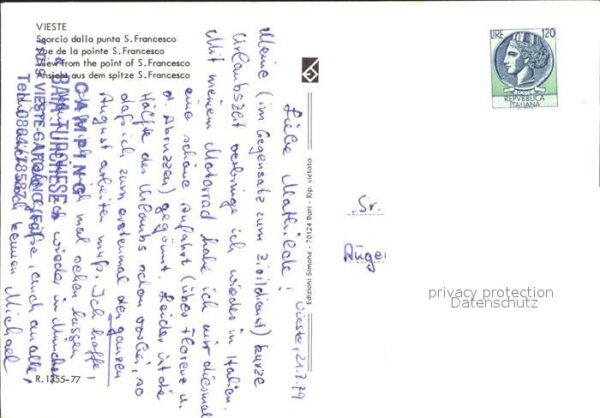 VIESTE
Scorcio dalla punta S. Francesco
Vue de la pointe S. Francesco
View from the point of S. Francesco
Ansicht aus dem spitze S. Francesco
LIRE 120
REPVBBLICA
ITALIANA
Edizioni Simone - 70124 Bari - Rip. vietata
Vieste, 21.7.79
Liebe Mathilde!
Meine (im Gegensatz zum Zivildienst) kurze
Urlaubszeit verbringe ich wieder in Italien.
Mit meinem Motorrad habe ich mir diesmal
eine schöne Anfahrt (über Florenz u.
d. Abruzzen) gegönnt. Leider ist die
Hälfte des Urlaubs schon vorbei, so
daß ich zum erstenmal den ganzen
August arbeiten muß. Ich hoffe,
mal sehen lassen
wieder in München
Grüße, auch an alle,
kennen Michael
CAMPING
BAIA TURCHESE
71019 VIESTE-GARGANO (FG)
Tel. 0884/78587
Sr.
privacy protection
Datenschutz
R. 1355-77